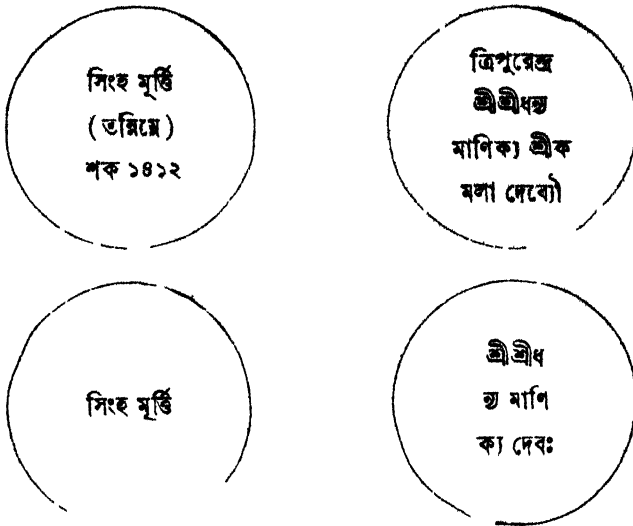 সিংহ মূর্ত্তি
( তন্নিম্নে )
শক ১৪১২
ত্রিপুরেন্দ্র
শ্রীশ্রীধন্য
মাণিক্য শ্রীক
মলা দেব্যৌ
সিংহ মূর্ত্তি
শ্রীশ্রীধ
ন্য মাণি
ক্য দেবঃ